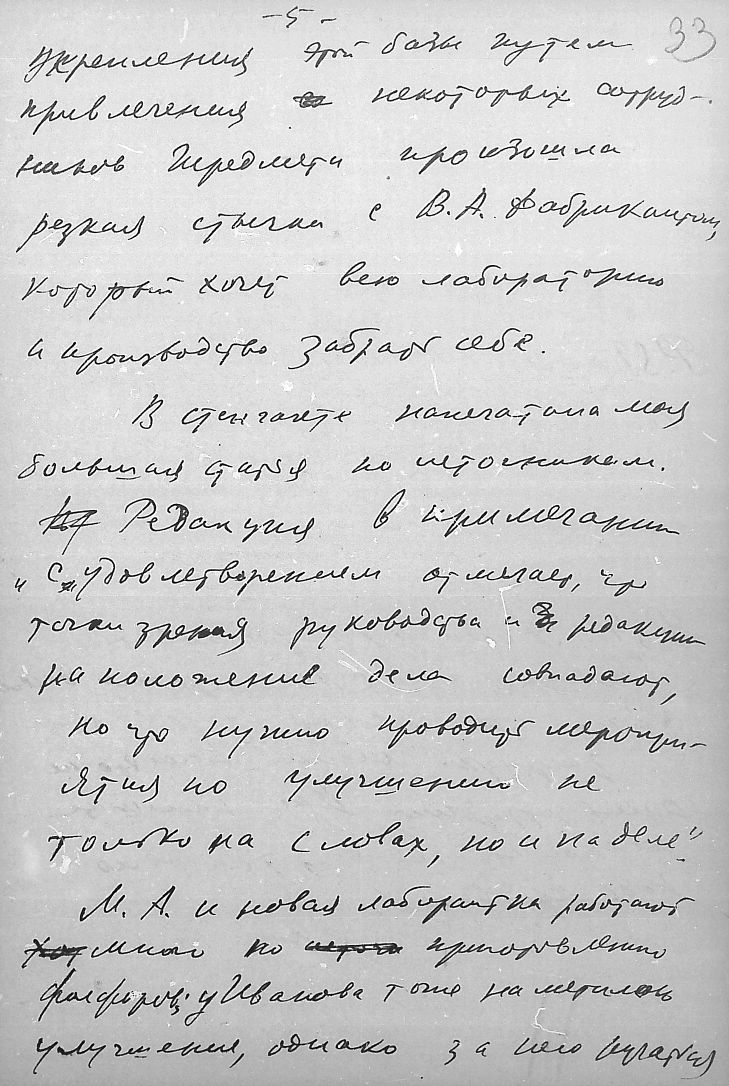 -5-
33
укрепления этой базы путем
привлечения некоторых сотруд-
ников Гиредмета произошла
резкая стычка с В.А. Фабрикантом,
который хочет всю лабораторию
и производство забрать себе.
В стенгазете напечатана моя
большая статья по источникам.
Редакция в примечании
"с удовлетворением отмечает, что
точки зрения руководства и редакции
на положение дела совпадают,
но что нужно проводить меропри-
ятия по улучшению не
только на словах, но и на деле"
М.А. и новая лаборантка работают
много по приготовлению
фосфоров; у Иванова тоже наметилось
улучшение, однако за него ручаться